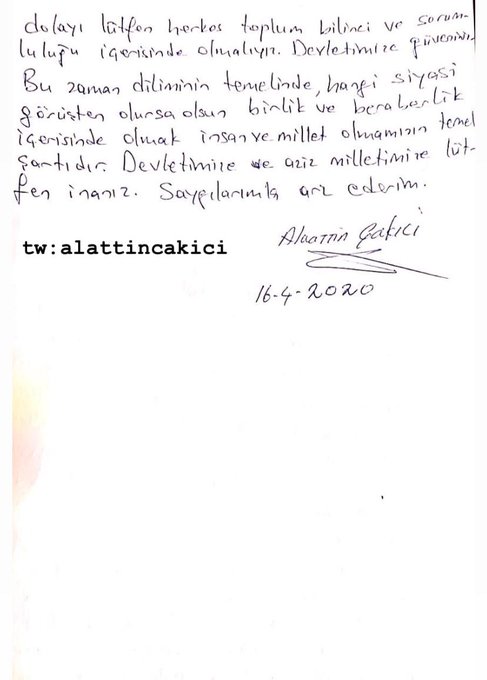 dolayı lütfen herkes toplum bilinci ve sorum-
luluğu içerisinde olmalıyız. Devletimize güveniniz
Bu zaman diliminin temelinde, hangi siyasi
görüşten olursa olsun birlik ve beraberlik
içerisinde olmak insan ve millet olmamızın temel
şartıdır. Devletimize ve aziz milletimize lüt-
fen inanız. Saygılarımla arz ederim.
Alaattin Çakıcı
tw:alattincakici
16-4-2020